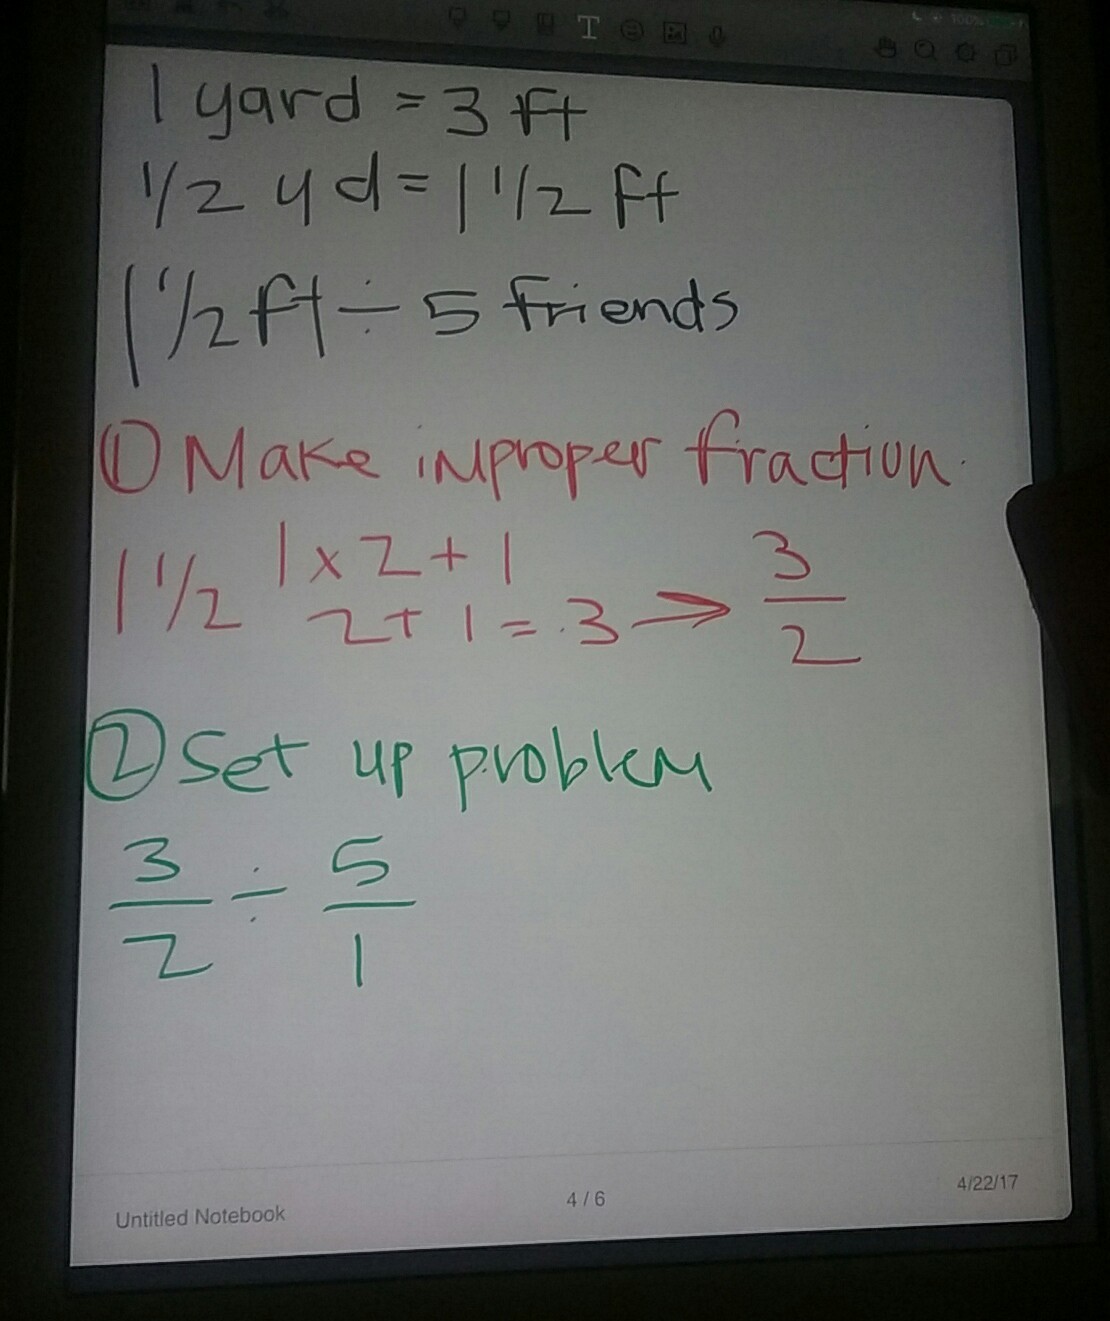 100%
1 yard = 3 ft
1/2 yd = 1 1/2 ft
1 1/2 ft ÷ 5 friends
① Make improper fraction.
1 1/2 1 x 2 + 1
2 + 1 = 3 → 3/2
② Set up problem
3/2 ÷ 5/1
Untitled Notebook 4 / 6 4/22/17